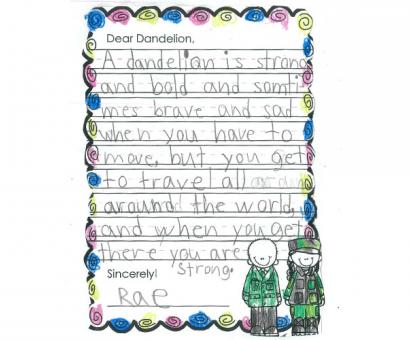 Dear Dandelion,
A dandelion is strong
and bold and somti
mes brave and sad
when you have to
move, but you get
to travel all
around the world,
and when you get
there you are
strong.
Sincerely!
Rae